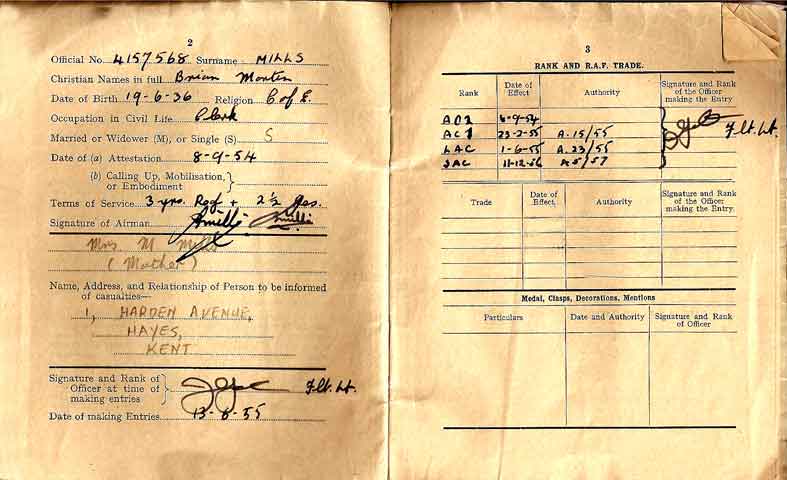 2
Official No. 4157568 Surname MILLS
Christian Names in full Brian
Date of Birth 19-6-36 Religion C of E.
Occupation in Civil Life Clerk
Married or Widower (M), or Single (S) S
Date of (a) Attestation 8-9-54
(b) Calling Up, Mobilisation, or Embodiment
Terms of Service 3 yrs. Reg + 2½ Res.
Signature of Airman
Mrs M Mills
(Mother)
Name, Address, and Relationship of Person to be informed
of casualties—
1, HARDEN AVENUE,
HAYES,
KENT
Signature and Rank of
Officer at time of
making entries
Flt. Lt.
Date of making Entries 13-6-55
3
RANK AND R.A.F. TRADE.
Rank Date of Effect Authority Signature and Rank of the Officer making the Entry
AC2 8-9-54
AC1 23-2-55 A.15/55
LAC 1-6-55 A.23/55
SAC 11-12-56 A5/57
Flt. Lt.
Trade Date of Effect Authority Signature and Rank of the Officer making the Entry.
Medal, Clasps, Decorations, Mentions
Particulars Date and Authority Signature and Rank of Officer